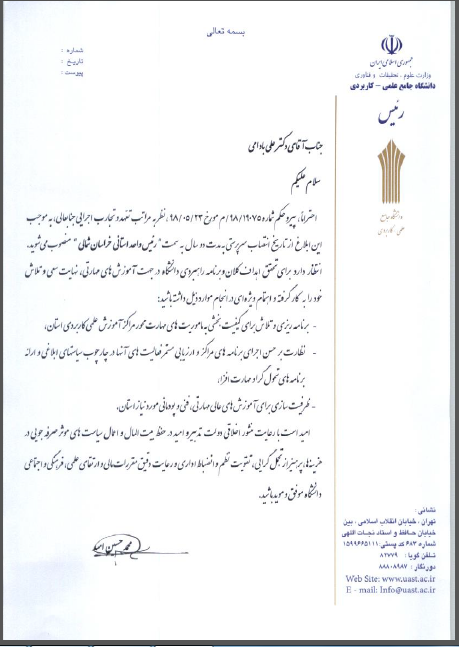 بسمه تعالی
شماره :
تاریخ :
پیوست :
جمهوری اسلامی ایران
وزارت علوم، تحقیقات و فناوری
دانشگاه جامع علمی - کاربردی
رئیس
دانشگاه جامع
علمی - کاربردی
جناب آقای دکتر علی بادامی
سلام علیکم
احتراماً، پیرو حکم شماره ۹۸/۱۹۰۷۵/م مورخ ۹۸/۰۵/۲۳، نظر به مراتب تعهد و تجارب اجرایی جنابعالی، به موجب
این ابلاغ از تاریخ انتصاب سرپرستی به مدت دو سال به سمت "رئیس واحد استانی خراسان شمالی" منصوب می‌شوید.
انتظار دارد برای تحقق اهداف کلان و برنامه راهبردی دانشگاه در جهت آموزش های مهارتی، نهایت سعی و تلاش
خود را به کار گرفته و اهتمام ویژه‌ای در انجام موارد ذیل داشته باشید:
- برنامه ریزی و تلاش برای کیفیت بخشی به ماموریت های مهارت محور مراکز آموزش علمی کاربردی استان،
- نظارت بر حسن اجرای برنامه های مراکز و ارزیابی مستمر فعالیت های آنها در چارچوب سیاستهای ابلاغی و ارائه
برنامه های تحول گرا و مهارت افزا،
- ظرفیت سازی برای آموزش های عالی مهارتی، فنی و پودمانی مورد نیاز استان،
امید است با رعایت منشور اخلاقی دولت تدبیر و امید در حفظ بیت المال و اعمال سیاست های موثر صرفه جویی در
هزینه‌ها، پرهیز از تجمل گرایی، تقویت نظم و انضباط اداری و رعایت دقیق مقررات مالی و ارتقای علمی، فرهنگی و اجتماعی
دانشگاه موفق و موید باشید.
محمد حسین امید
نشانی :
تهران ، خیابان انقلاب اسلامی ، بین
خیابان حافظ و استاد نجات اللهی
شماره ۶۸۳ کد پستی: ۱۵۹۹۶۶۵۱۱۱
تلفن گویا : ۸۲۷۷۹
دورنگار : ۸۸۸۰۸۹۸۷
Web Site: www.uast.ac.ir
E - mail: Info@uast.ac.ir